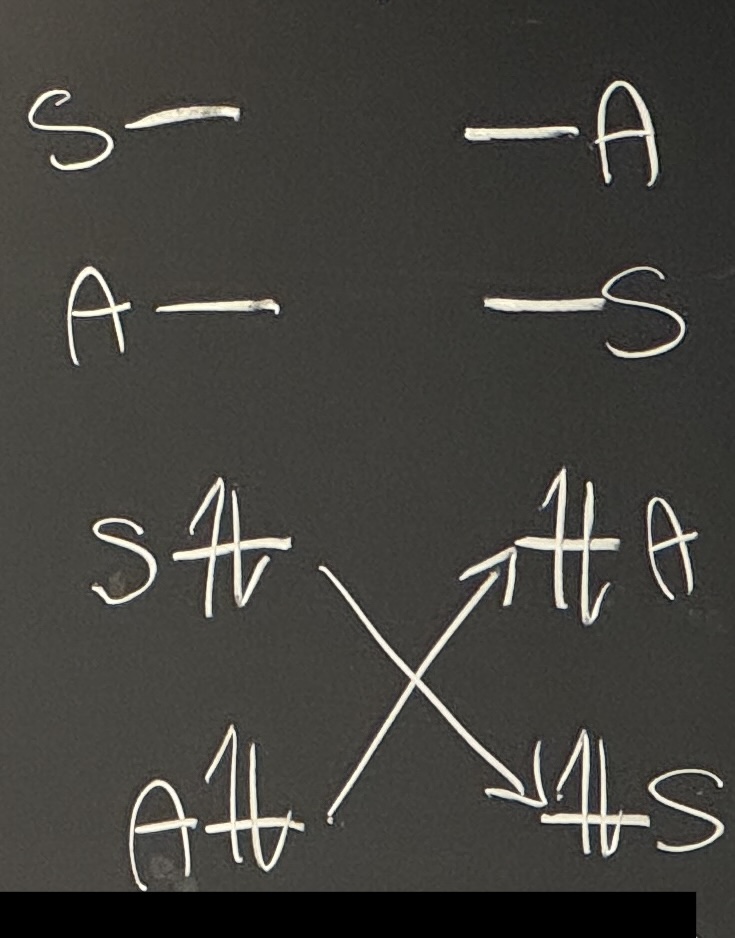 S — — A
A — — S
S ⥮ ⥮ A
A ⥮ ⥮ S